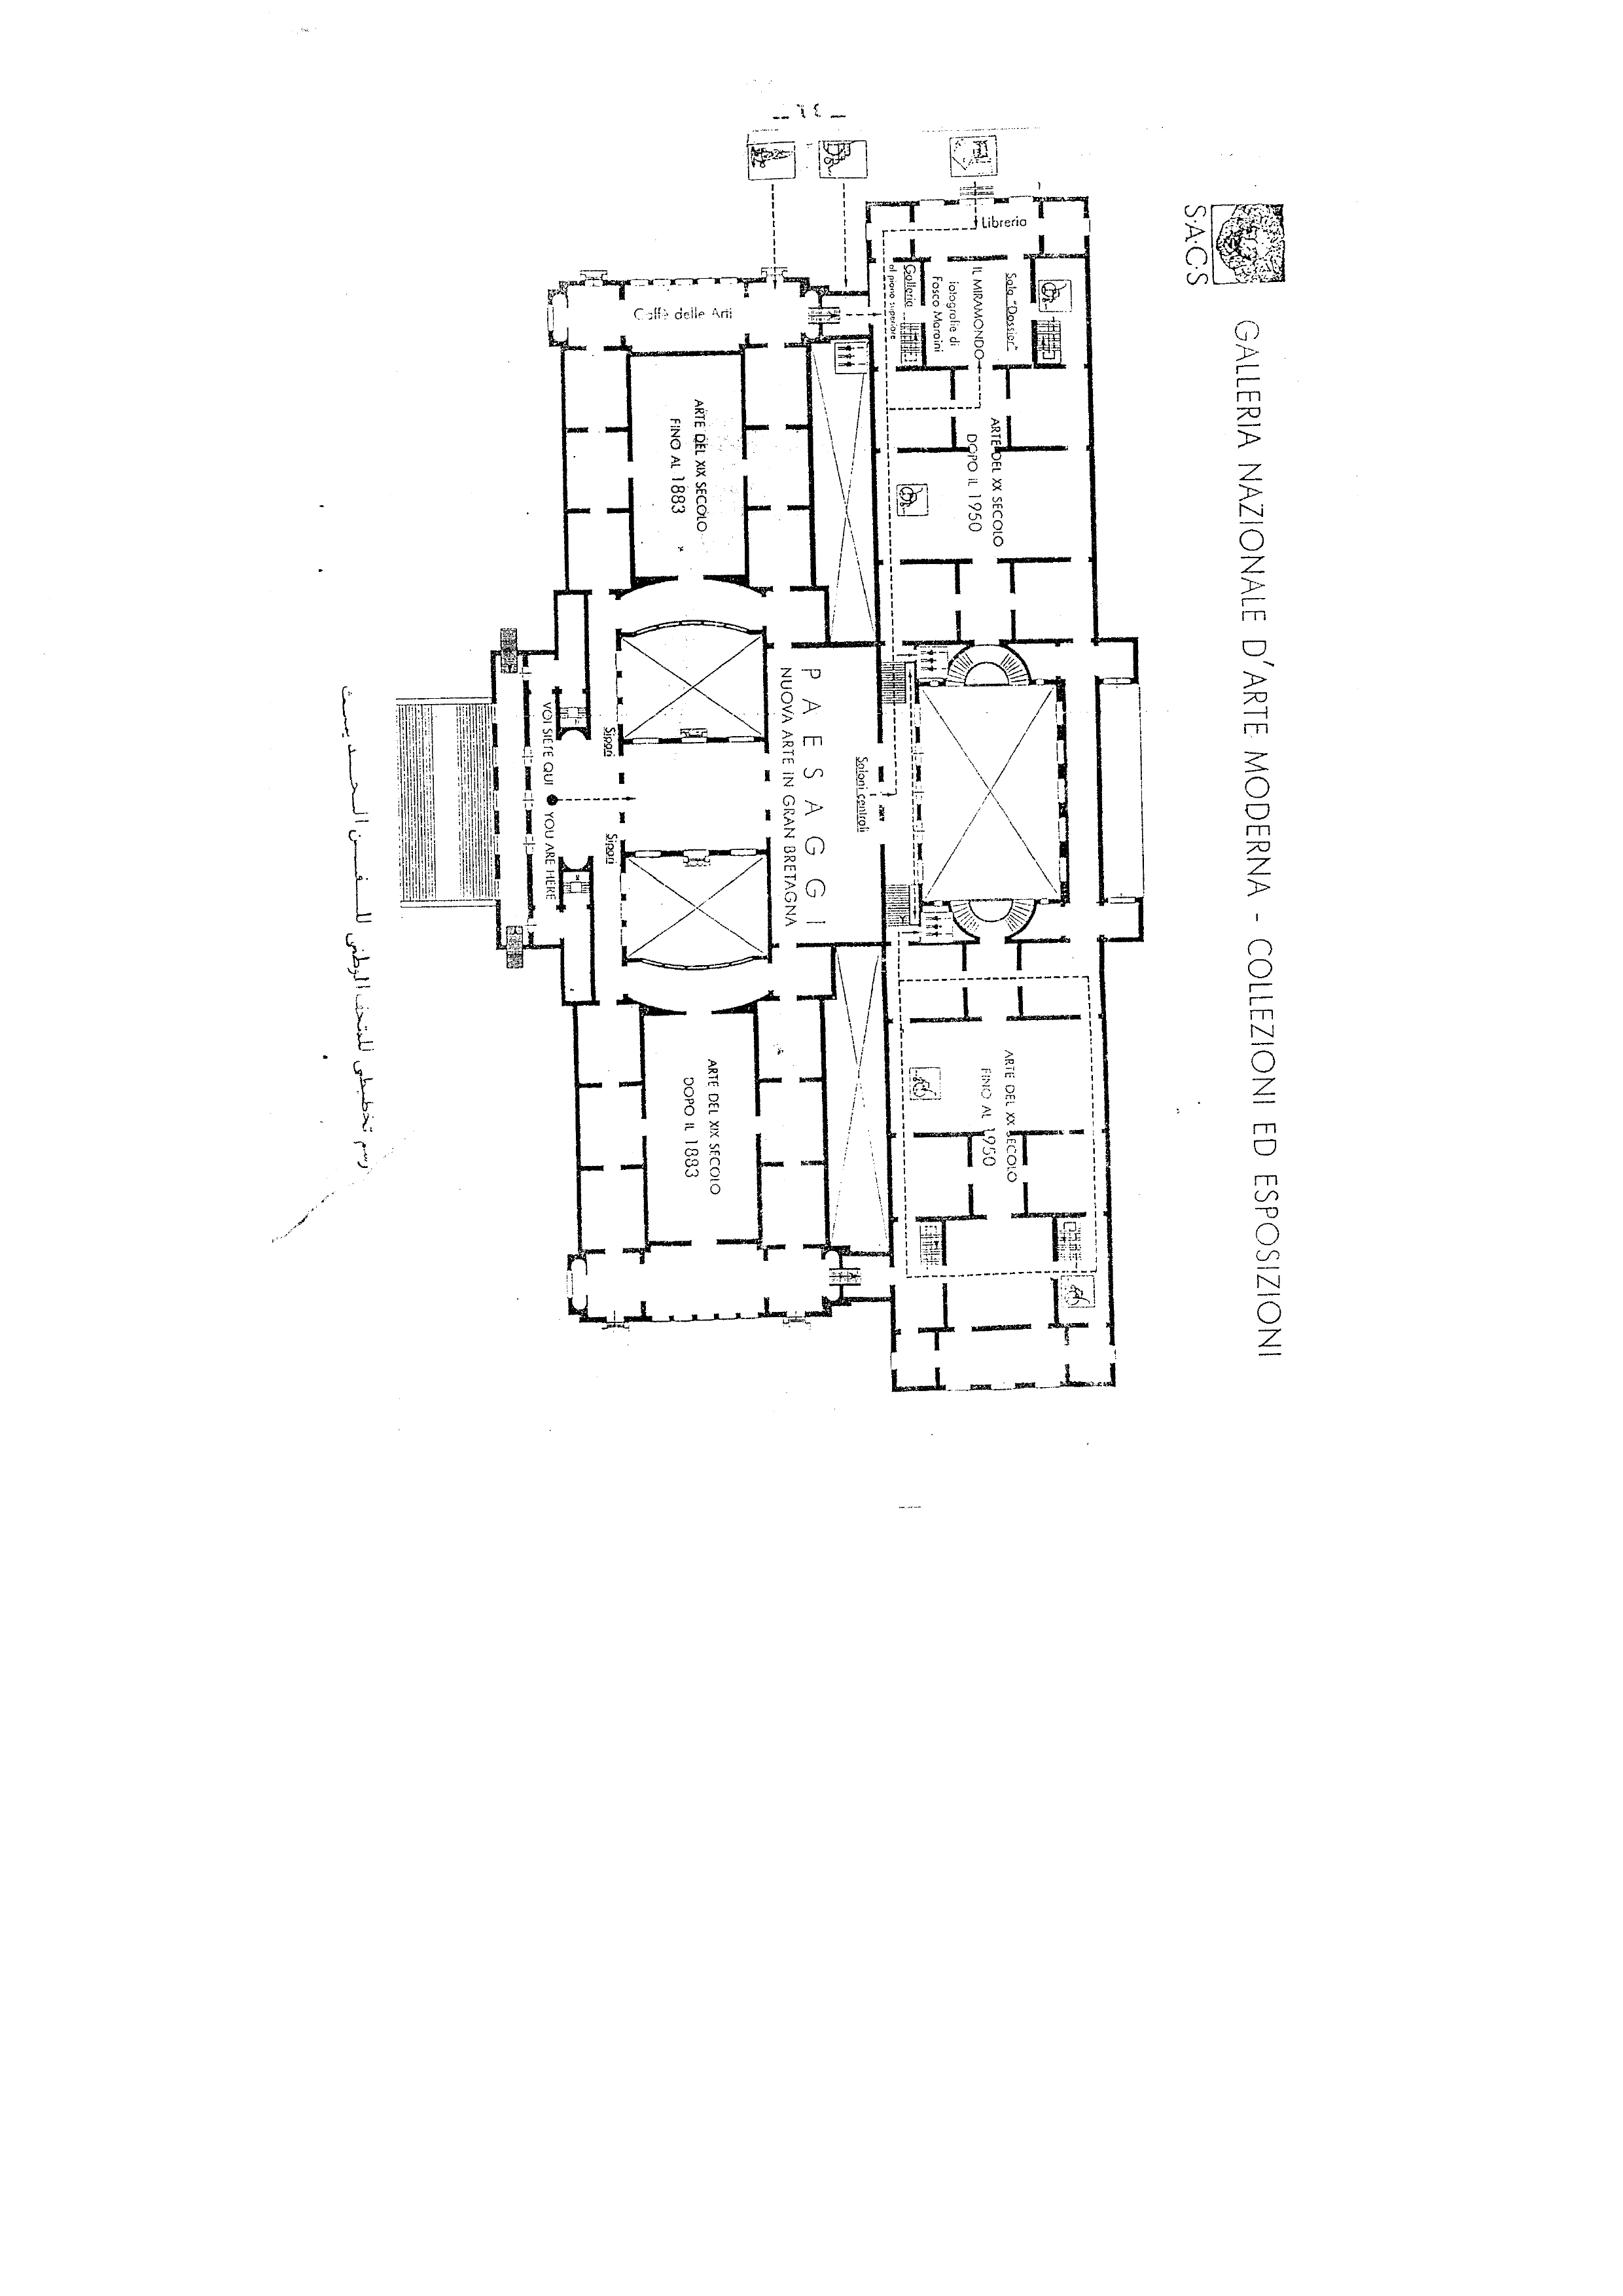 — ٦٤ —
S·A·C·S
GALLERIA NAZIONALE D'ARTE MODERNA - COLLEZIONI ED ESPOSIZIONI
Libreria
Sala "Dossier"
IL MIRAMONDO
fotografie di
Fosco Maraini
Galleria
al piano superiore
ARTE DEL XX SECOLO
DOPO IL 1950
ARTE DEL XX SECOLO
FINO AL 1950
Saloni centrali
PAESAGGI
NUOVA ARTE IN GRAN BRETAGNA
Caffè delle Arti
ARTE DEL XIX SECOLO
FINO AL 1883
ARTE DEL XIX SECOLO
DOPO IL 1883
Sipari
Sipari
VOI SIETE QUI
YOU ARE HERE
رسم تخطيطى للمتحف الوطنى للفن الحديث